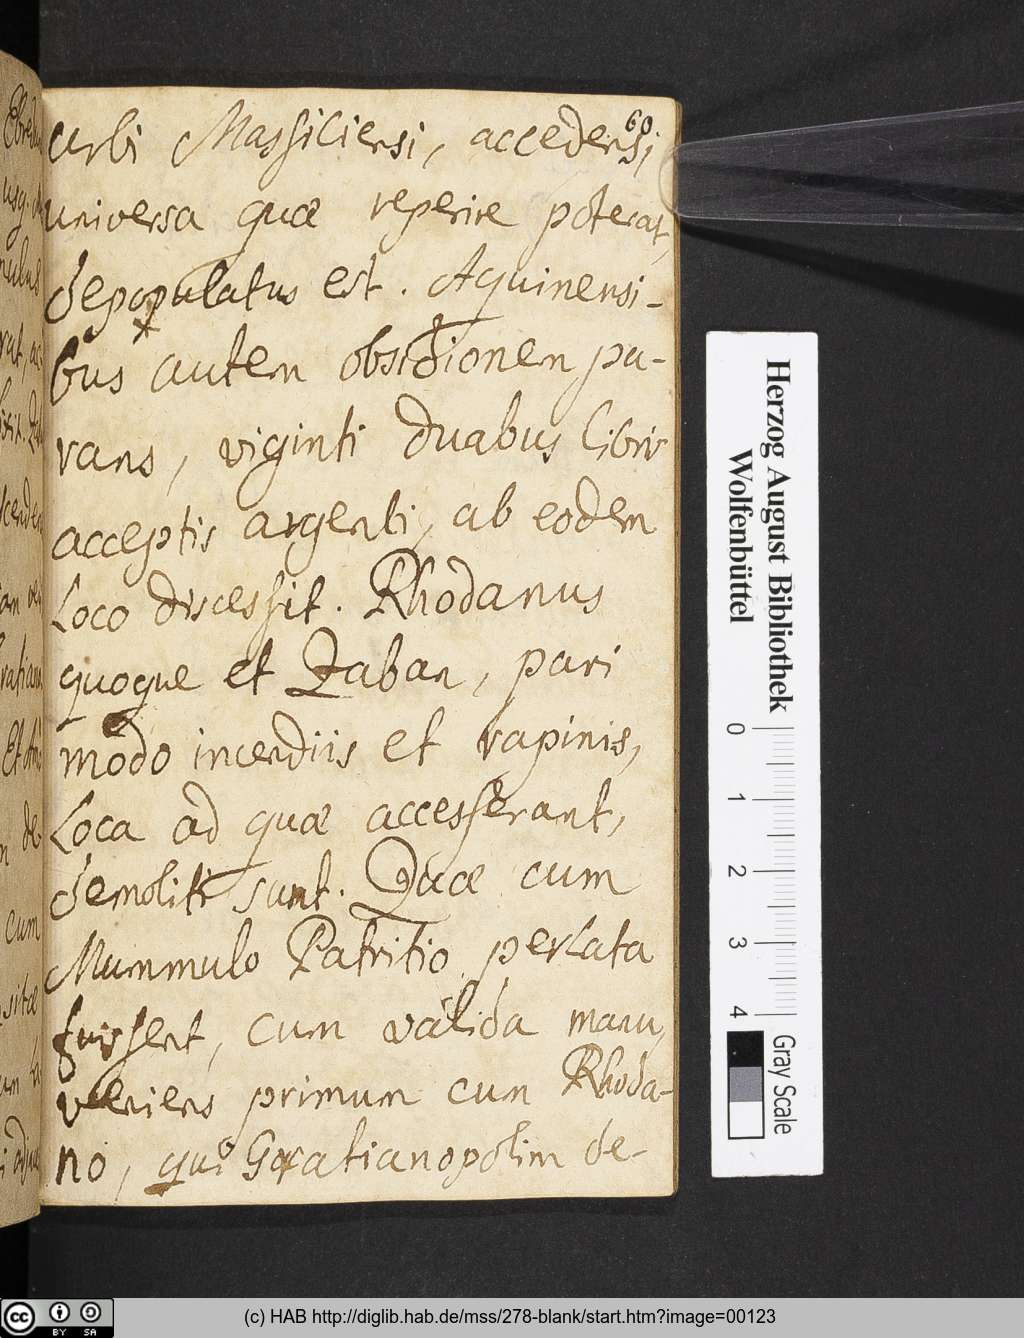 60.
urbi Massiliensi, accedens,
universa quæ reperire poterat,
depopulatus est. Aquinensi-
bus autem obsidionem pa-
rans, viginti duabus libris
acceptis argenti, ab eodem
Loco discessit. Rhodanus
quoque et Zaban, pari
modo incendiis et rapinis,
Loca ad quæ accesserant,
demoliti sunt. Quæ cum
Mummulo Patritio perlata
fuissent, cum valida manu,
veniens primum cum Rhoda-
no, qui Gratianopolim de-
Herzog August Bibliothek
Wolfenbüttel
0 1 2 3 4
Gray Scale
cc BY SA
(c) HAB http://diglib.hab.de/mss/278-blank/start.htm?image=00123